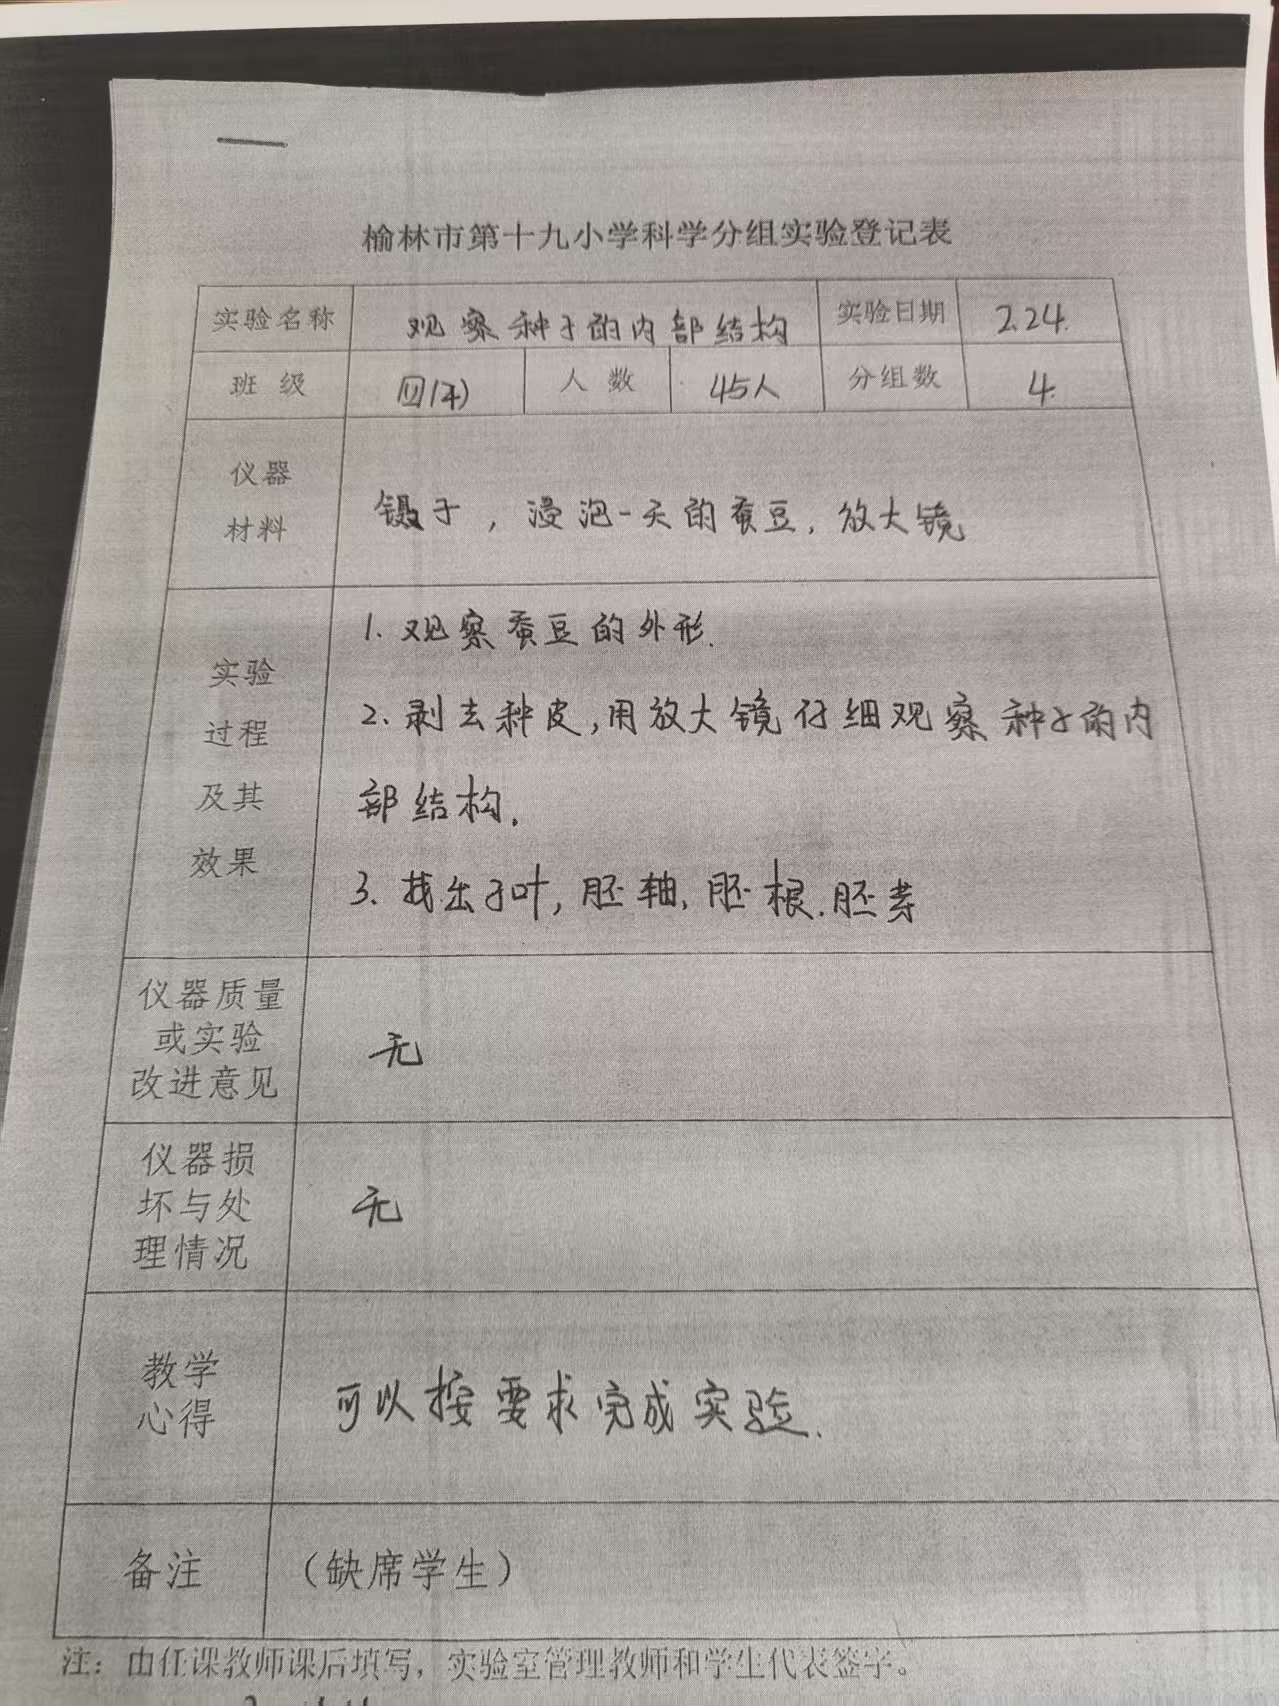 榆林市第十九小学科学分组实验登记表
实验名称 观察种子的内部结构 实验日期 2.24.
班 级 四(4) 人 数 45人 分组数 4.
仪器
材料
镊子，浸泡一天的蚕豆，放大镜
实验
过程
及其
效果
1. 观察蚕豆的外形.
2. 剥去种皮，用放大镜仔细观察种子的内
部结构.
3. 找出子叶，胚轴、胚根.胚芽
仪器质量
或实验
改进意见
无
仪器损
坏与处
理情况
无
教学
心得
可以按要求完成实验.
备注
（缺席学生）
注：由任课教师课后填写，实验室管理教师和学生代表签字。